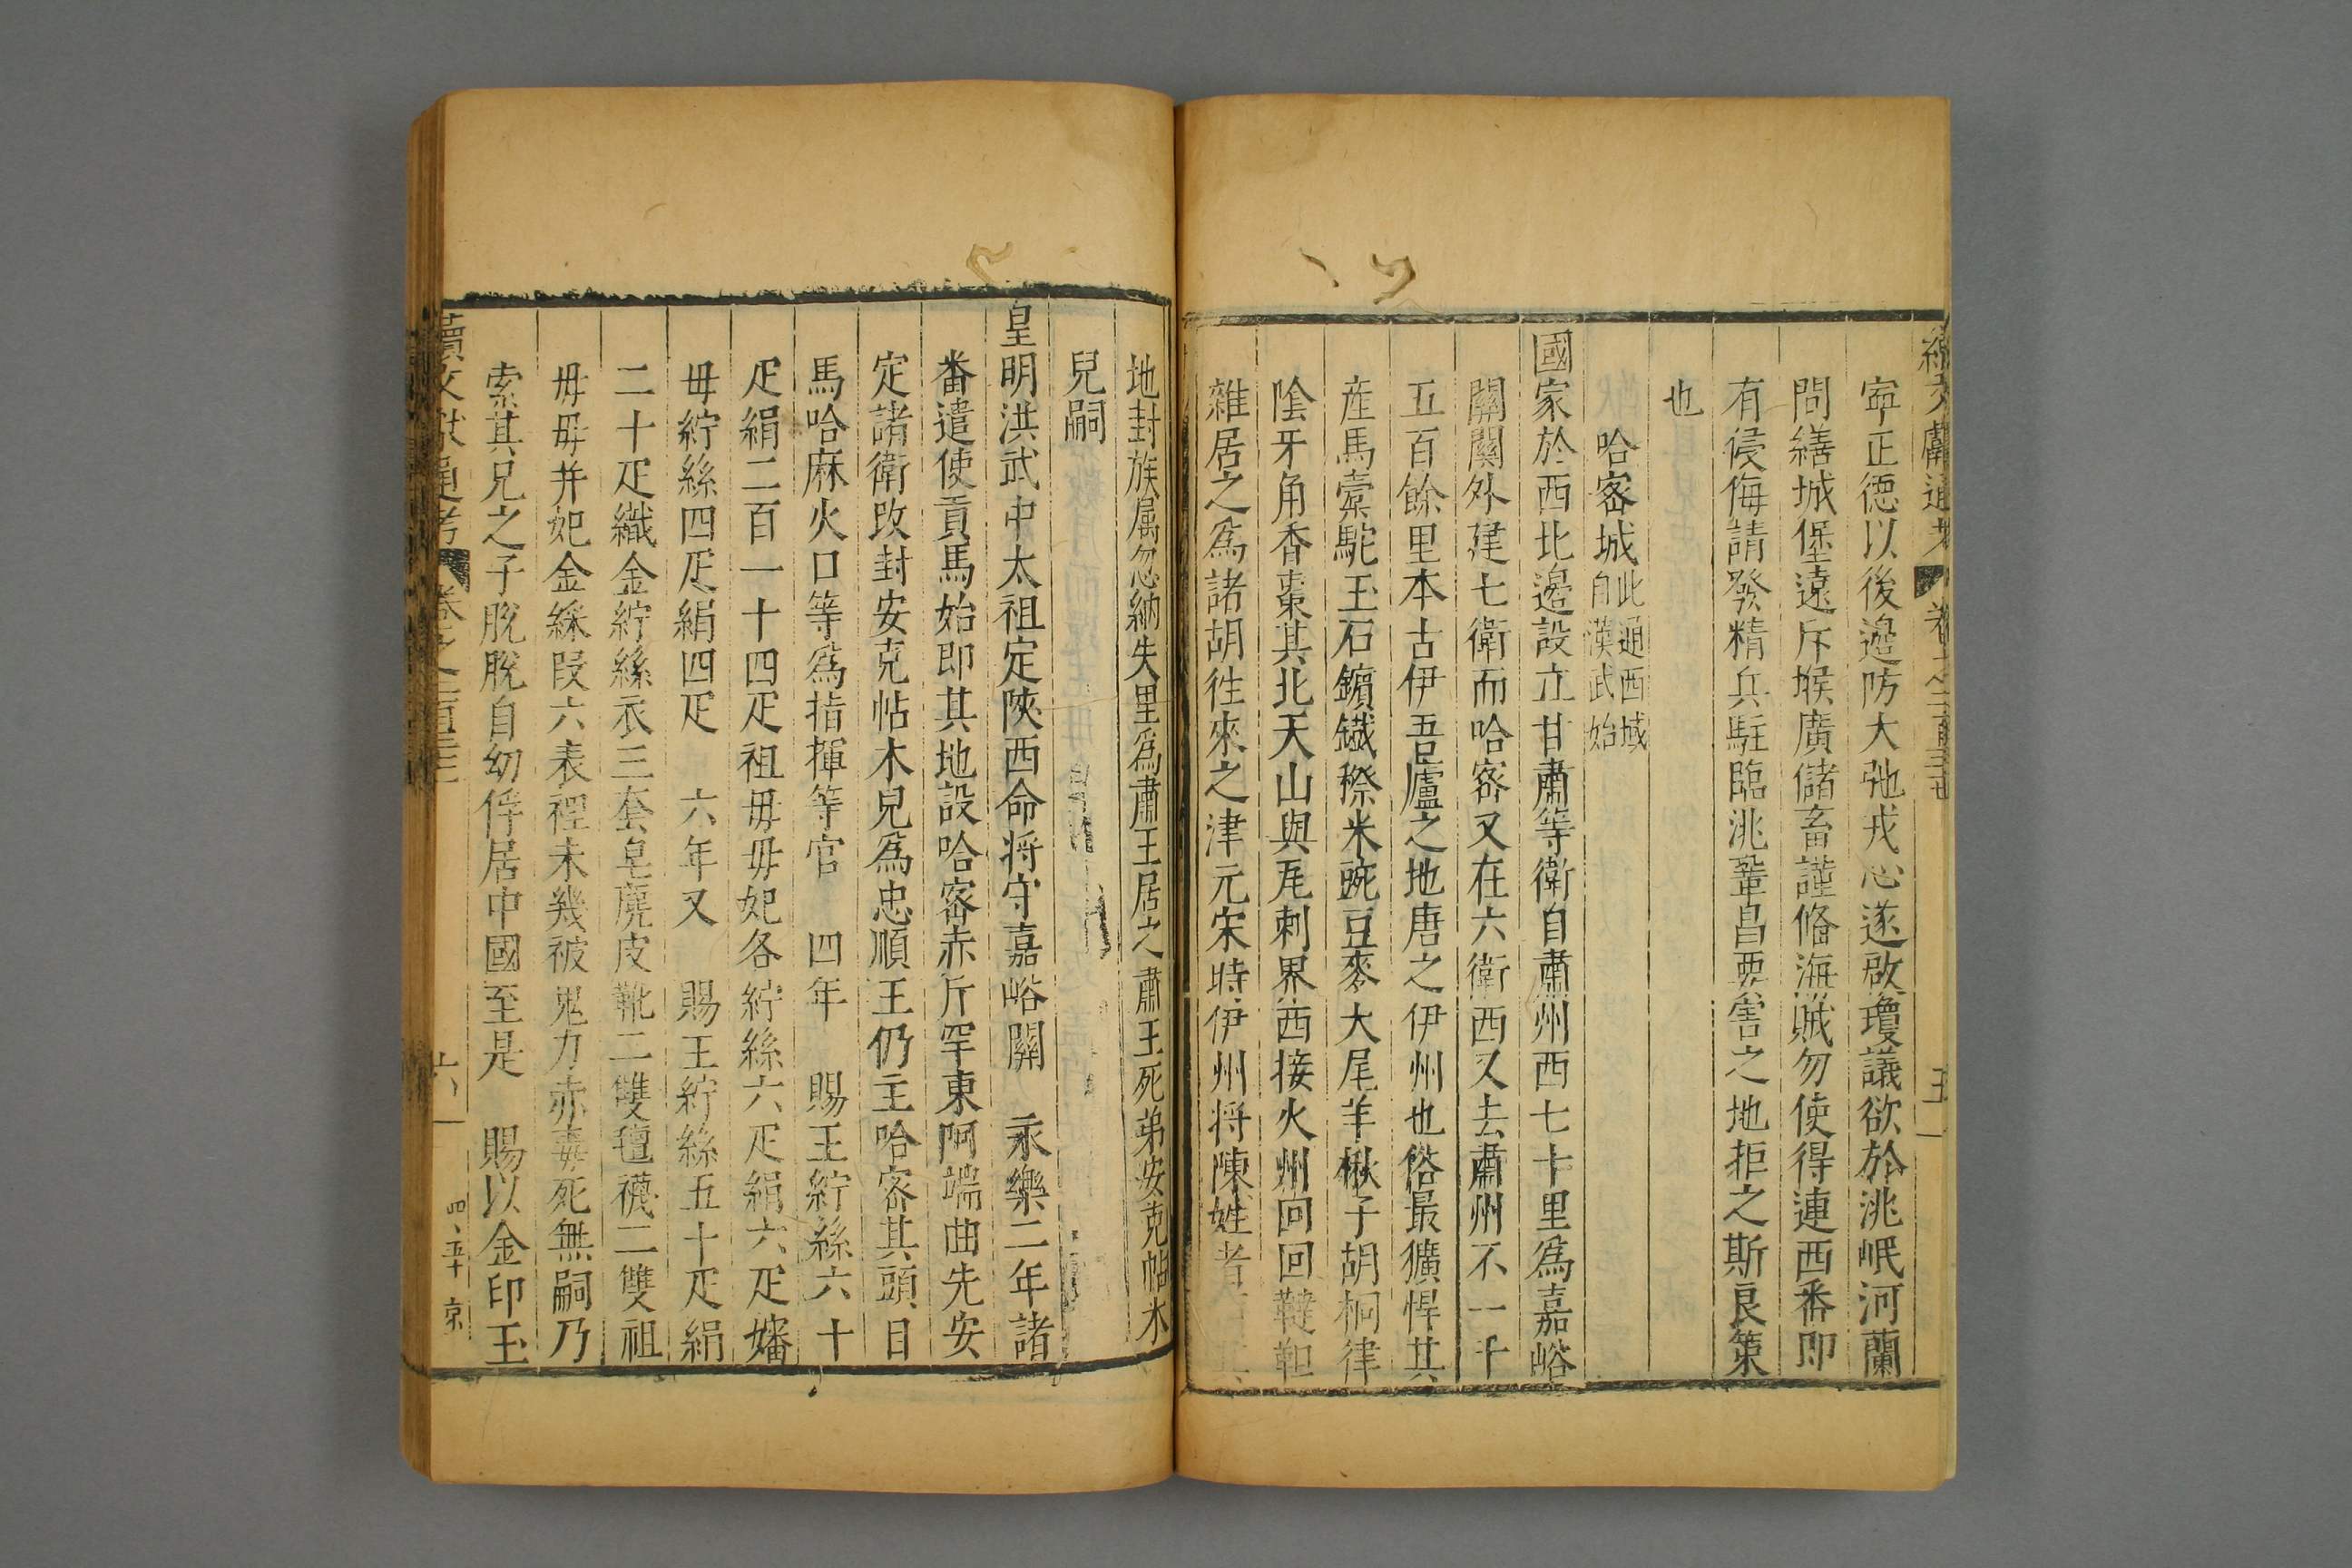 寧正德以後邊防大弛戎心遂啟瓊議欲於洮岷河蘭
間繕城堡遠斥堠廣儲畜謹俻海賊勿使得連西番即
有侵侮請發精兵駐臨洮鞏昌要害之地拒之斯良策
也
哈密城此通西域自漢武始
國家於西北邊設立甘肅等衛自肅州西七十里爲嘉峪
關關外建七衛而哈密又在六衛西又去肅州不一千
五百餘里本古伊吾廬之地唐之伊州也俗最獷悍其
産馬橐駝玉石鑌鐵穄米豌豆麥大尾羊楸子胡桐律
隂牙角香棗其北天山與瓦剌界西接火州回回韃靼
雜居之爲諸胡徃來之津元宋時伊州將陳姓者
地封族属忽納失里爲肅王居之肅王死弟安克帖木
兒嗣
皇明洪武中太祖定陝西命將守嘉峪關 永樂二年諸
番遣使貢馬始即其地設哈密赤斤罕東阿端曲先安
定諸衛改封安克帖木兒爲忠順王仍主哈密其頭目
馬哈麻火口等爲指揮等官 四年 賜王紵絲六十
疋絹二百一十四疋祖母毋妃各紵絲六疋絹六疋嬸
毋紵絲四疋絹四疋 六年又 賜王紵絲五十疋絹
二十疋織金紵絲衣三套皂麂皮靴二雙氊襪二雙祖
毋毋并妃金綵叚六表裡未幾被鬼力赤毒死無嗣乃
索其兄之子脫脫自幼俘居中國至是 賜以金印玉
續文獻通考 卷之二百三十
六